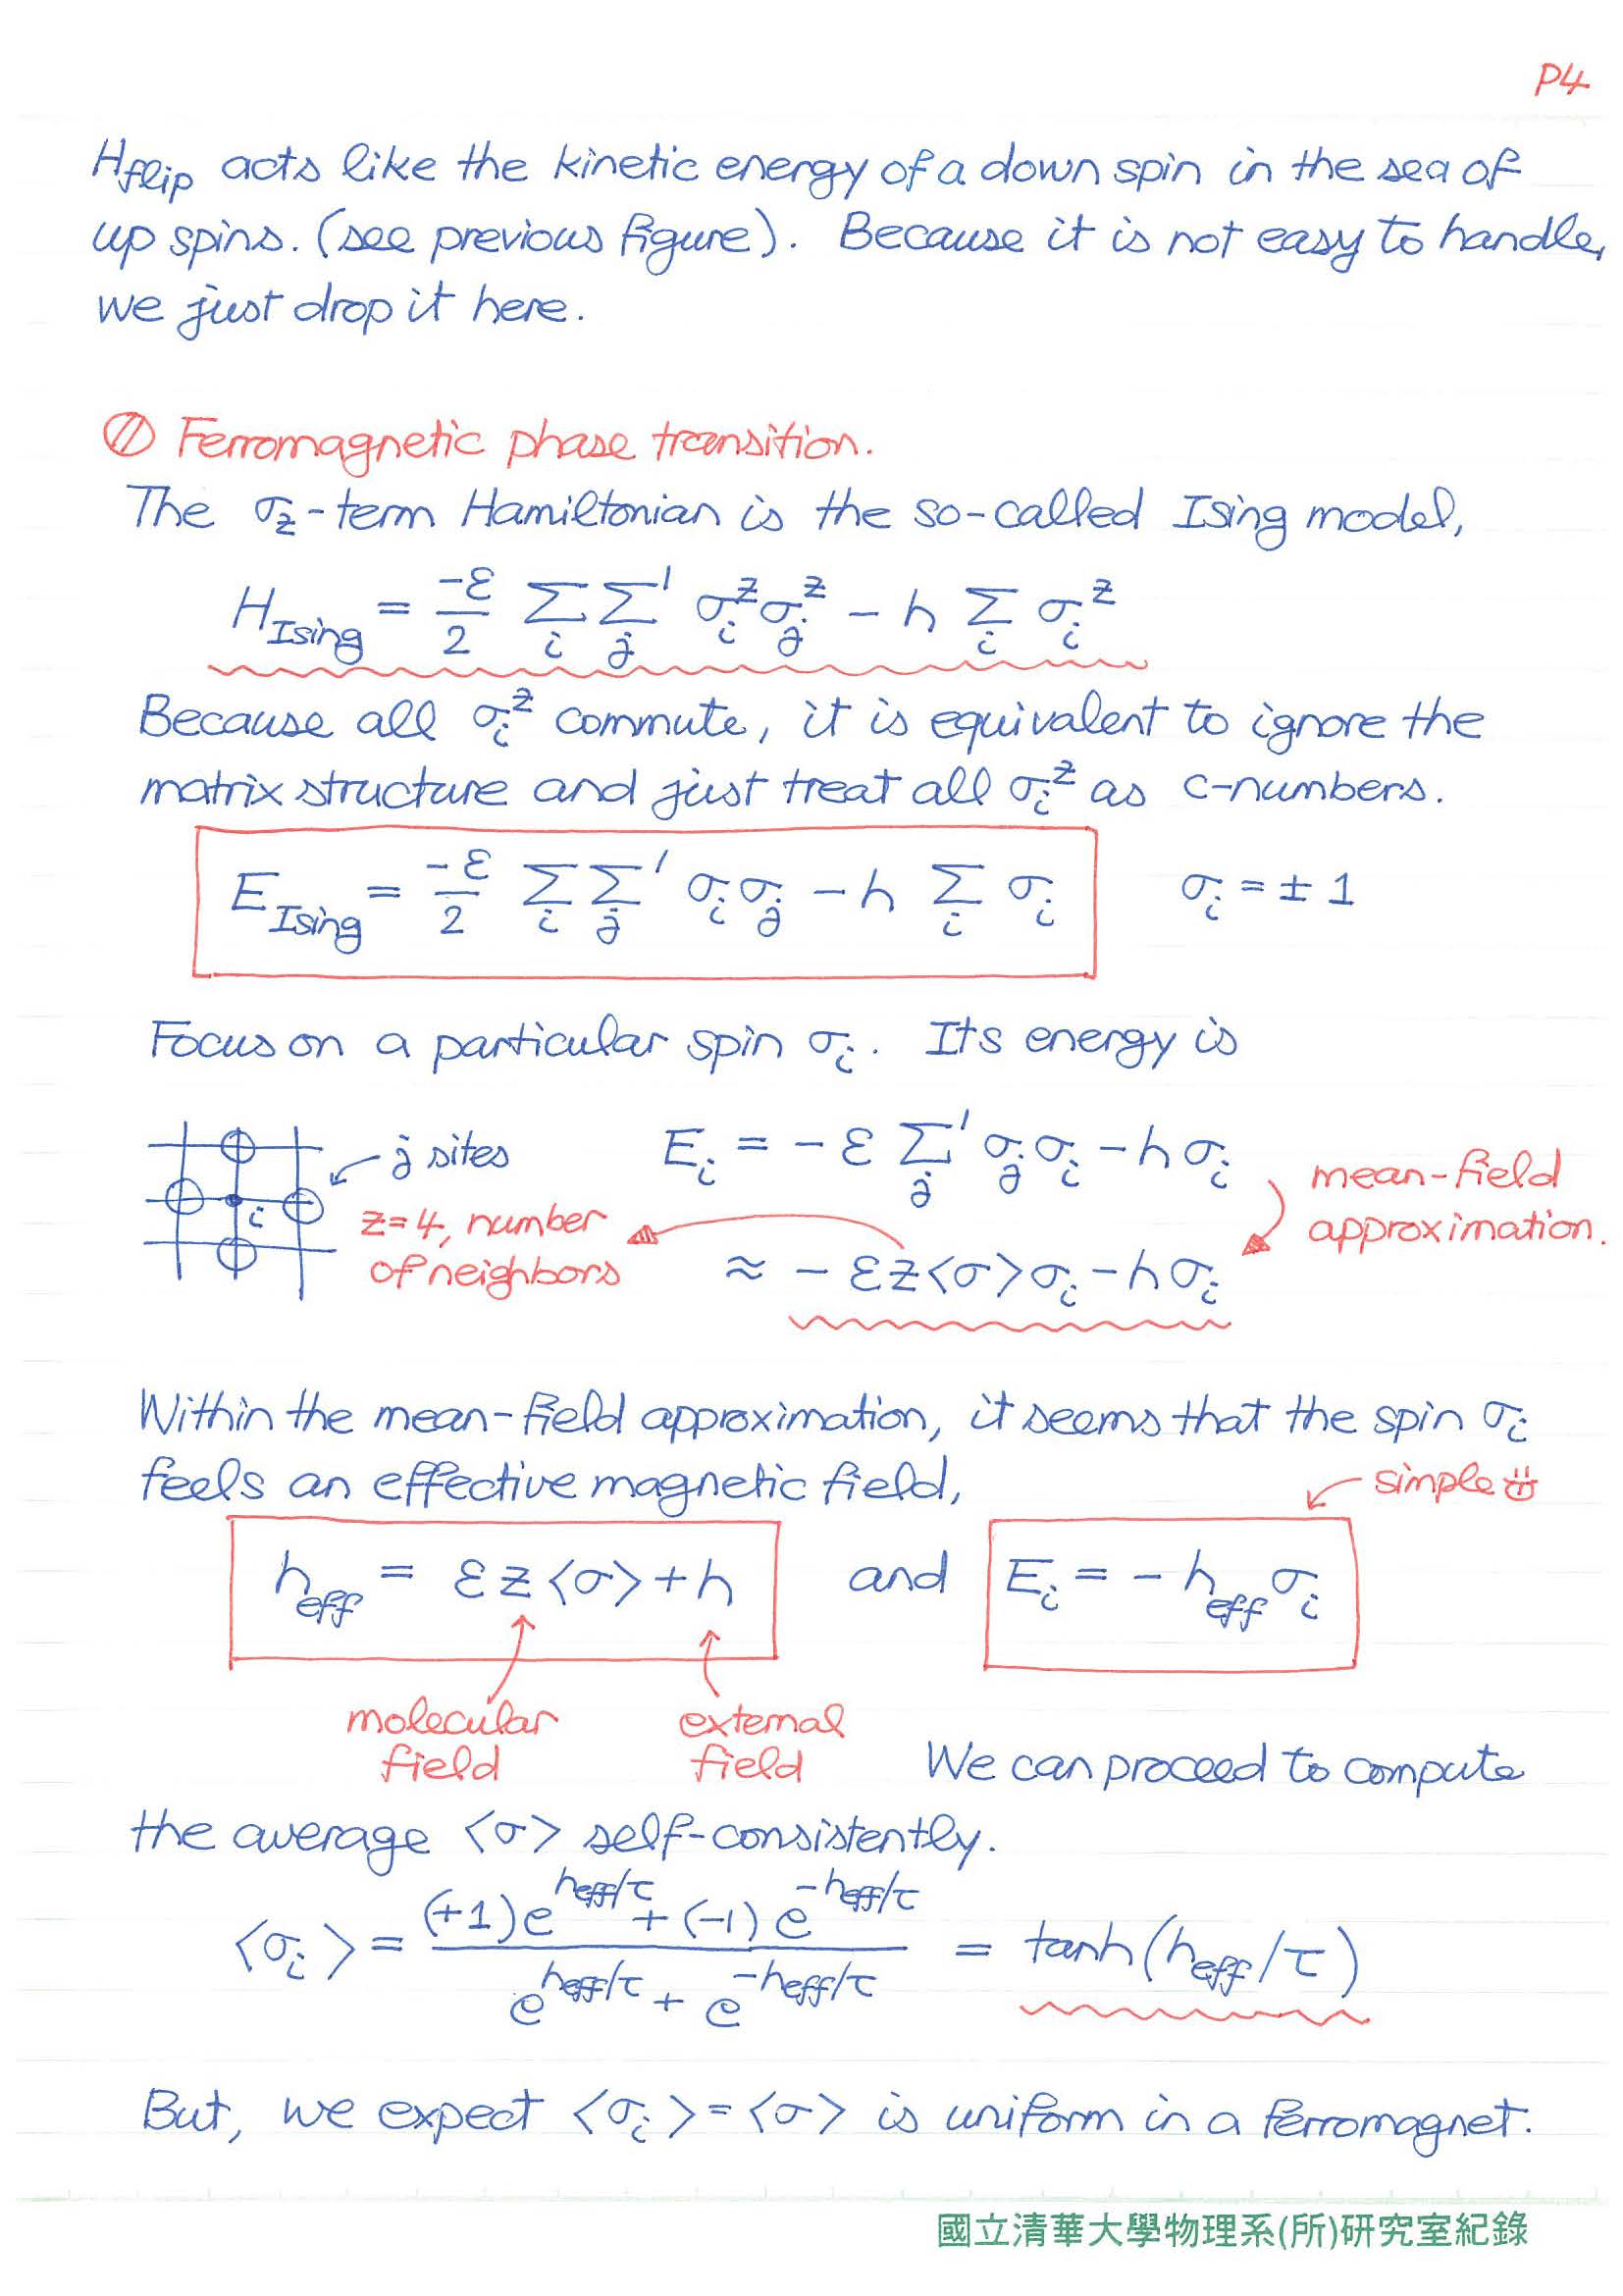 P4
H_flip acts like the kinetic energy of a down spin in the sea of
up spins. (see previous figure). Because it is not easy to handle,
we just drop it here.
Ferromagnetic phase transition.
The σ_z-term Hamiltonian is the so-called Ising model,
H_Ising = -ε/2 Σ_i Σ_j' σ_i^z σ_j^z - h Σ_i σ_i^z
Because all σ_i^z commute, it is equivalent to ignore the
matrix structure and just treat all σ_i^z as c-numbers.
E_Ising = -ε/2 Σ_i Σ_j' σ_i σ_j - h Σ_i σ_i   σ_i = ± 1
Focus on a particular spin σ_i. Its energy is
j sites   E_i = - ε Σ_j' σ_j σ_i - h σ_i
mean-field
approximation.
i
z=4, number
of neighbors
≈ - εz<σ>σ_i - hσ_i
Within the mean-field approximation, it seems that the spin σ_i
feels an effective magnetic field,
simple
h_eff = εz<σ> + h   and   E_i = - h_eff σ_i
molecular
field
external
field
We can proceed to compute
the average <σ> self-consistently.
<σ_i> = ((+1)e^{h_eff/τ} + (-1)e^{-h_eff/τ}) / (e^{h_eff/τ} + e^{-h_eff/τ}) = tanh(h_eff/τ)
But, we expect <σ_i> = <σ> is uniform in a ferromagnet.
國立清華大學物理系(所)研究室紀錄